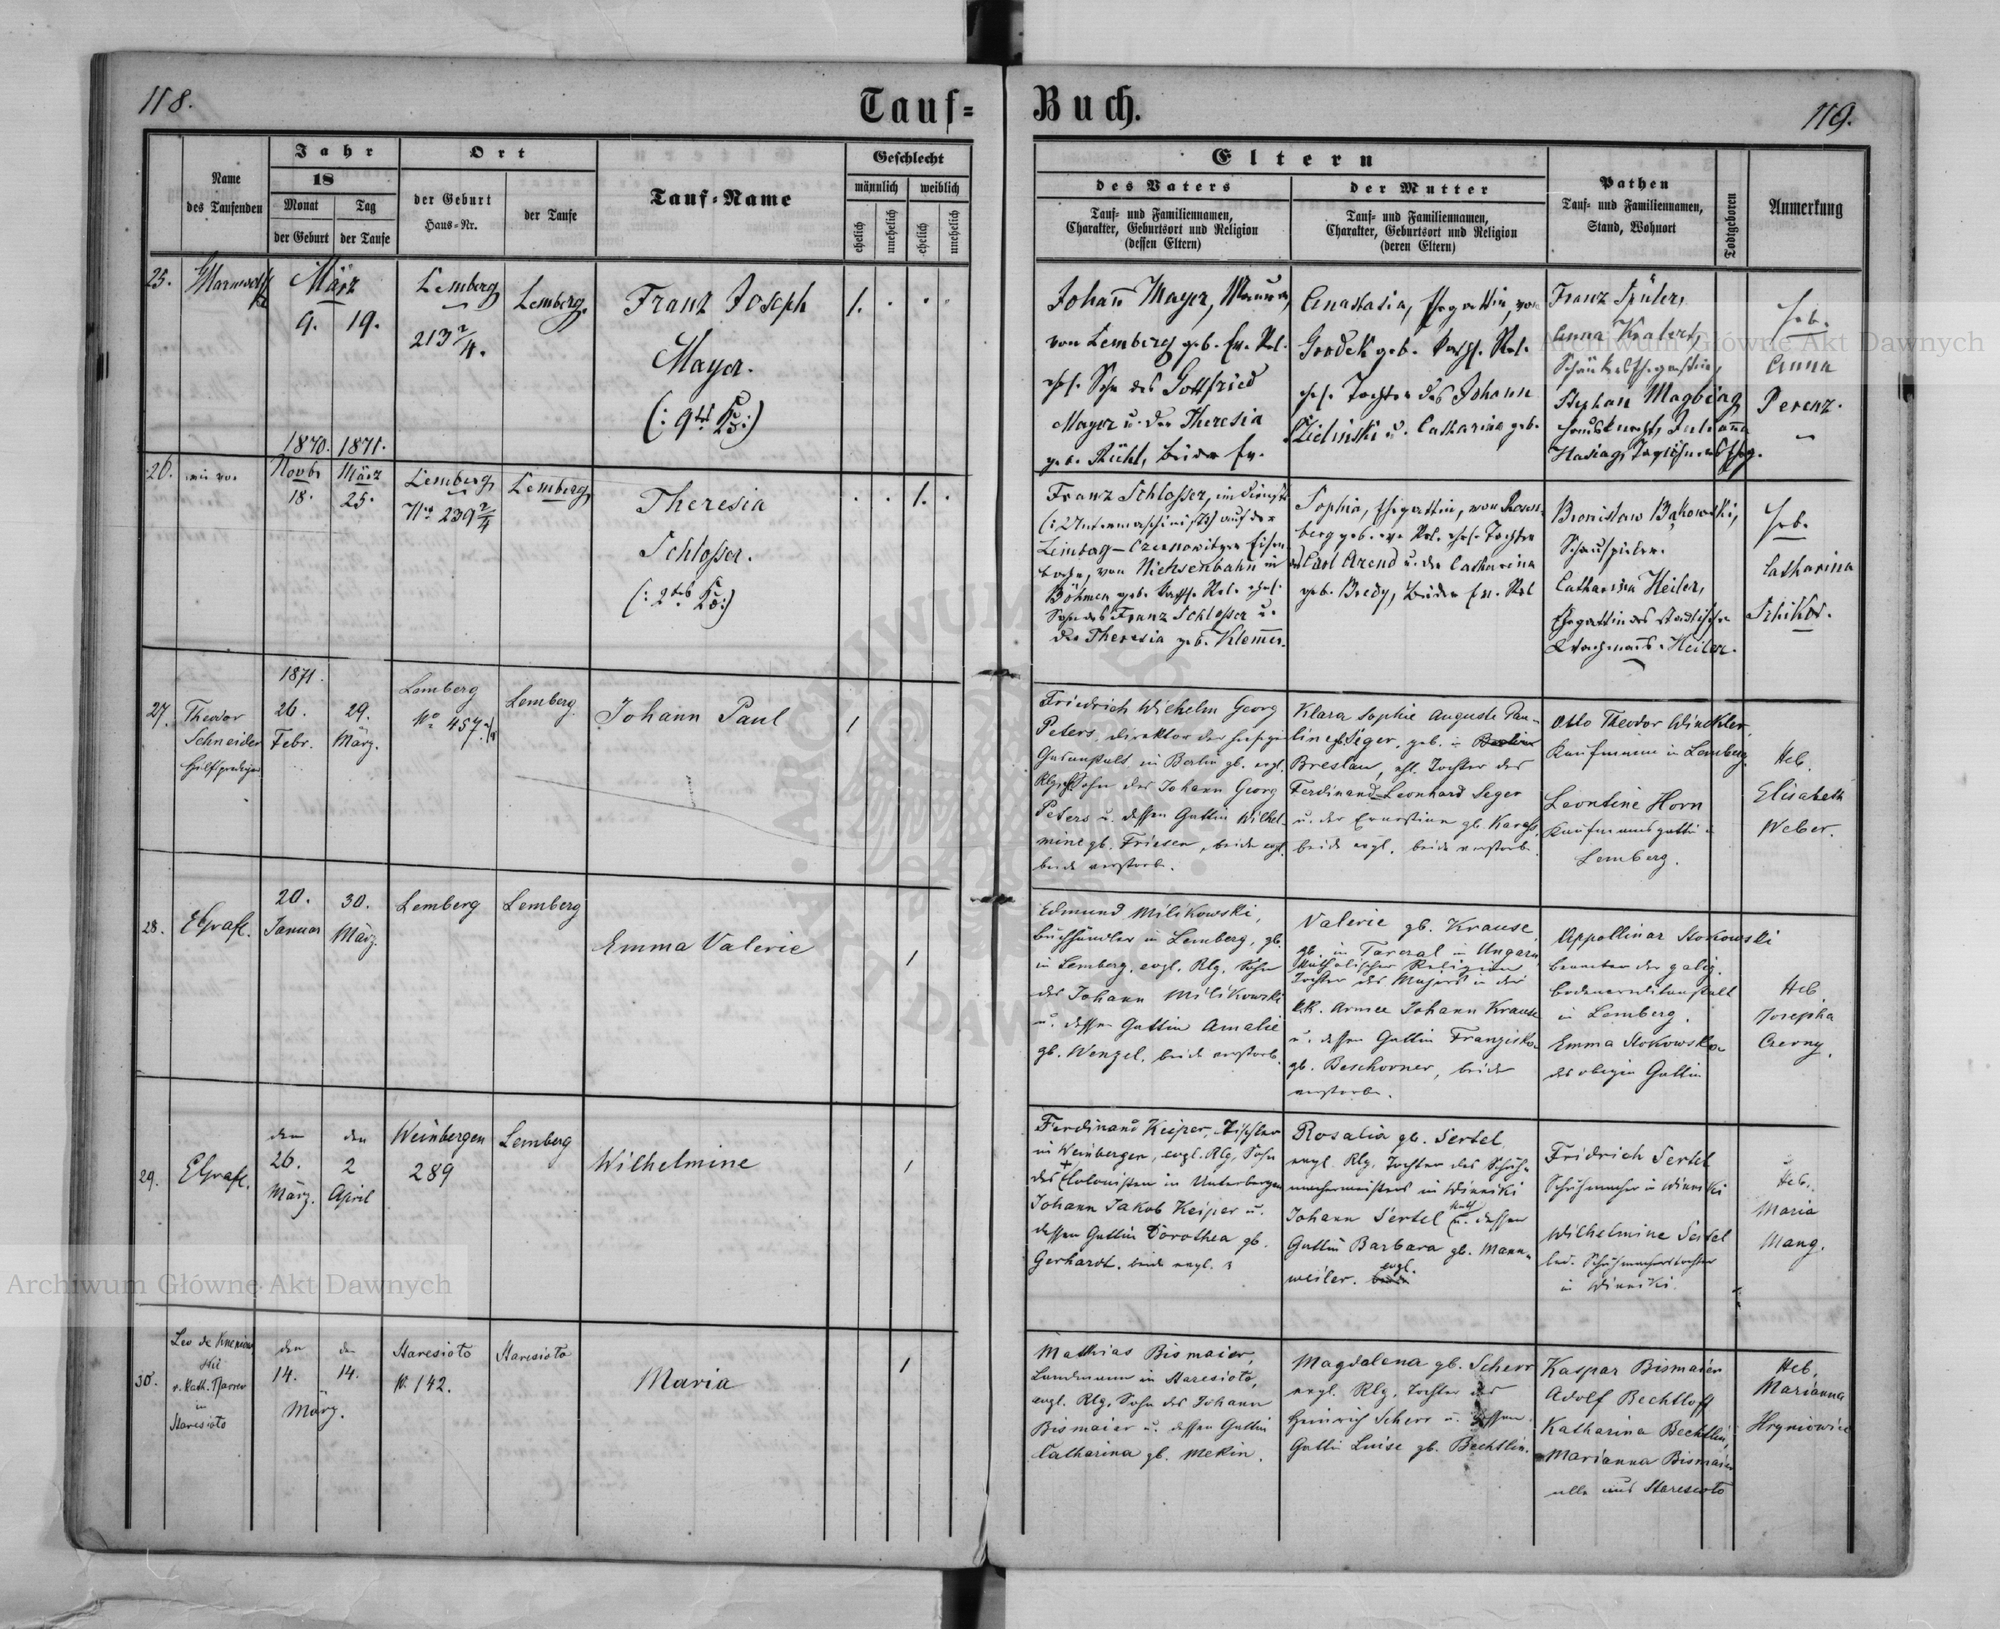 118.
Tauf=
Buch.
119.
Name
des Taufenden
Jahr
18
Monat
der Geburt
Tag
der Taufe
Ort
der Geburt
Haus=Nr.
der Taufe
Tauf=Name
Geschlecht
männlich
weiblich
ehelich
unehelich
ehelich
unehelich
Eltern
des Vaters
Tauf= und Familiennamen,
Charakter, Geburtsort und Religion
(dessen Eltern)
der Mutter
Tauf= und Familiennamen,
Charakter, Geburtsort und Religion
(deren Eltern)
Pathen
Tauf= und Familiennamen,
Stand, Wohnort
Todtgeboren
Anmerkung
25.
März
9. 19.
Lemberg
213 2/4.
Lemberg.
Franz Joseph
Mayer.
1.
Johann Mayer,
von Lemberg geb. Ev. Rel.
ehl. Sohn des Gottfried
Mayer u. der Theresia
geb. beide Ev.
Anastasia, Ehegattin, von
Grodek geb. Kath. Rel.
ehl. Tochter des Johann
Zielinski u. Catharina geb.
Franz
Anna
Stephan
Heb.
Anna
Perenz.
26.
1870. 1871.
Novbr März
18. 25.
Lemberg
No 239 2/4
Lemberg
Theresia
Schlosser.
1.
Franz Schlosser, im Dienste
auf der
Lemberg-Czernowitzer Eisen-
bahn, von in
Böhmen geb. Kath. Rel. ehel.
Sohn des Franz Schlosser u.
der Theresia geb. Klemer.
Sophia, Ehegattin, von Rosen-
berg geb. ev. Rel. ehel. Tochter
des Carl Arend u. der Catharina
geb. Bredy, beide Ev. Rel
Bronislaw Bąkowski,
Schauspieler.
Catharina Heiler,
Ehegattin des städtischen
Wachmanns Heiler.
Heb.
Catharina
27.
Theodor
Schneider
Hilfsprediger
1871.
26. 29.
Febr. März.
Lemberg
No 457
Lemberg.
Johann Paul
1
Friedrich Wilhelm Georg
Peters, Direktor der hiesigen
Gasanstalt, in Berlin gb. evgl.
Rlg. Sohn des Johann Georg
Peters u. dessen Gattin Wilhel-
mine gb. Friesen, beide evgl.
beide verstorb.
Klara Sophie Auguste Pau-
line gb Seger, geb. in Berlin
Breslau, ehl. Tochter des
Ferdinand Leonhard Seger
u. der Ernestine gb.
beide evgl. beide verstorb.
Otto Theodor Winckler,
Kaufmann in Lemberg.
Leontine Horn
Kaufmannsgattin in
Lemberg.
Heb.
Elisabeth
Weber.
28.
EGrafl.
20. 30.
Januar März.
Lemberg
Lemberg
Emma Valerie
1
Edmund Milikowski,
Buchhändler in Lemberg, gb.
in Lemberg, evgl. Rlg. Sohn
des Johann Milikowski
u. dessen Gattin Amalie
gb. Wenzel. beide verstorb.
Valerie gb. Krause,
gb. in Tarczal in Ungarn
Katholischer Religion,
Tochter des Majors in der
k.k. Armee Johann Krause
u. dessen Gattin Franziska
gb. Beschorner, beide
verstorb.
Appollinar Stokowski
Beamter der galiz.
Bodencreditanstalt
in Lemberg.
Emma Stokowska
des obigen Gattin
Heb.
Josepha
Czerny.
29.
EGrafl.
den den
26. 2
März. April
Weinbergen
289
Lemberg
Wilhelmine
1
Ferdinand Keiper, Tischler
in Weinbergen, evgl. Rlg, Sohn
des + Colonisten in Unterbergen
Johann Jakob Keiper u.
dessen Gattin Dorothea gb.
Gerhardt. beide evgl.
Rosalia gb. Sertel
evgl. Rlg. Tochter des Schuh-
machermeisters in Winniki
Johann Sertel kath u. dessen
Gattin Barbara gb. Mann-
weiler. evgl.
Fridrich Sertel
Schuhmacher in Winniki
Wilhelmine Sertel
led. Schuhmacherstochter
in Winniki.
Heb.
Maria
Mang.
30.
r. kath. Pfarrer
in
Staresioto
den den
14. 14.
März.
Staresioto
N. 142.
Staresioto
Maria
1
Mathias Bismaier,
Landmann in Staresioto,
evgl. Rlg, Sohn des Johann
Bismaier u. dessen Gattin
Catharina gb. Mekin.
Magdalena gb. Scherr
evgl. Rlg. Tochter des
Heinrich Scherr u. dessen
Gattin Luise gb. Bechtlin.
Kaspar Bismaier
Adolf Bechtloff
Katharina Bechtlin,
Marianna Bismaier
alle aus Staresioto
Heb.
Marianna
Hryniowic
Archiwum Główne Akt Dawnych
Archiwum Główne Akt Dawnych